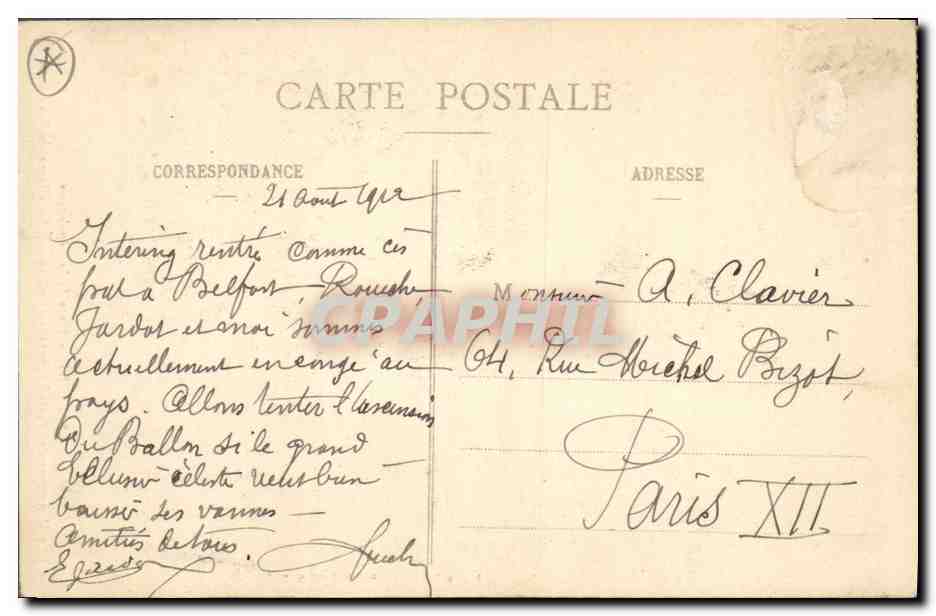 CARTE POSTALE
CORRESPONDANCE
ADRESSE
21 Aout 1912
rentré comme
à Belfort, Roueché,
Jardot et moi sommes
actuellement en congé au
pays. Allons tenter l'ascension
Du Ballon si le grand
Eclusier céleste veut bien
baisser ses vannes —
Amitiés de tous.
Monsieur A. Clavier
64, Rue Michel Bizot,
Paris XII
CPAPHIL